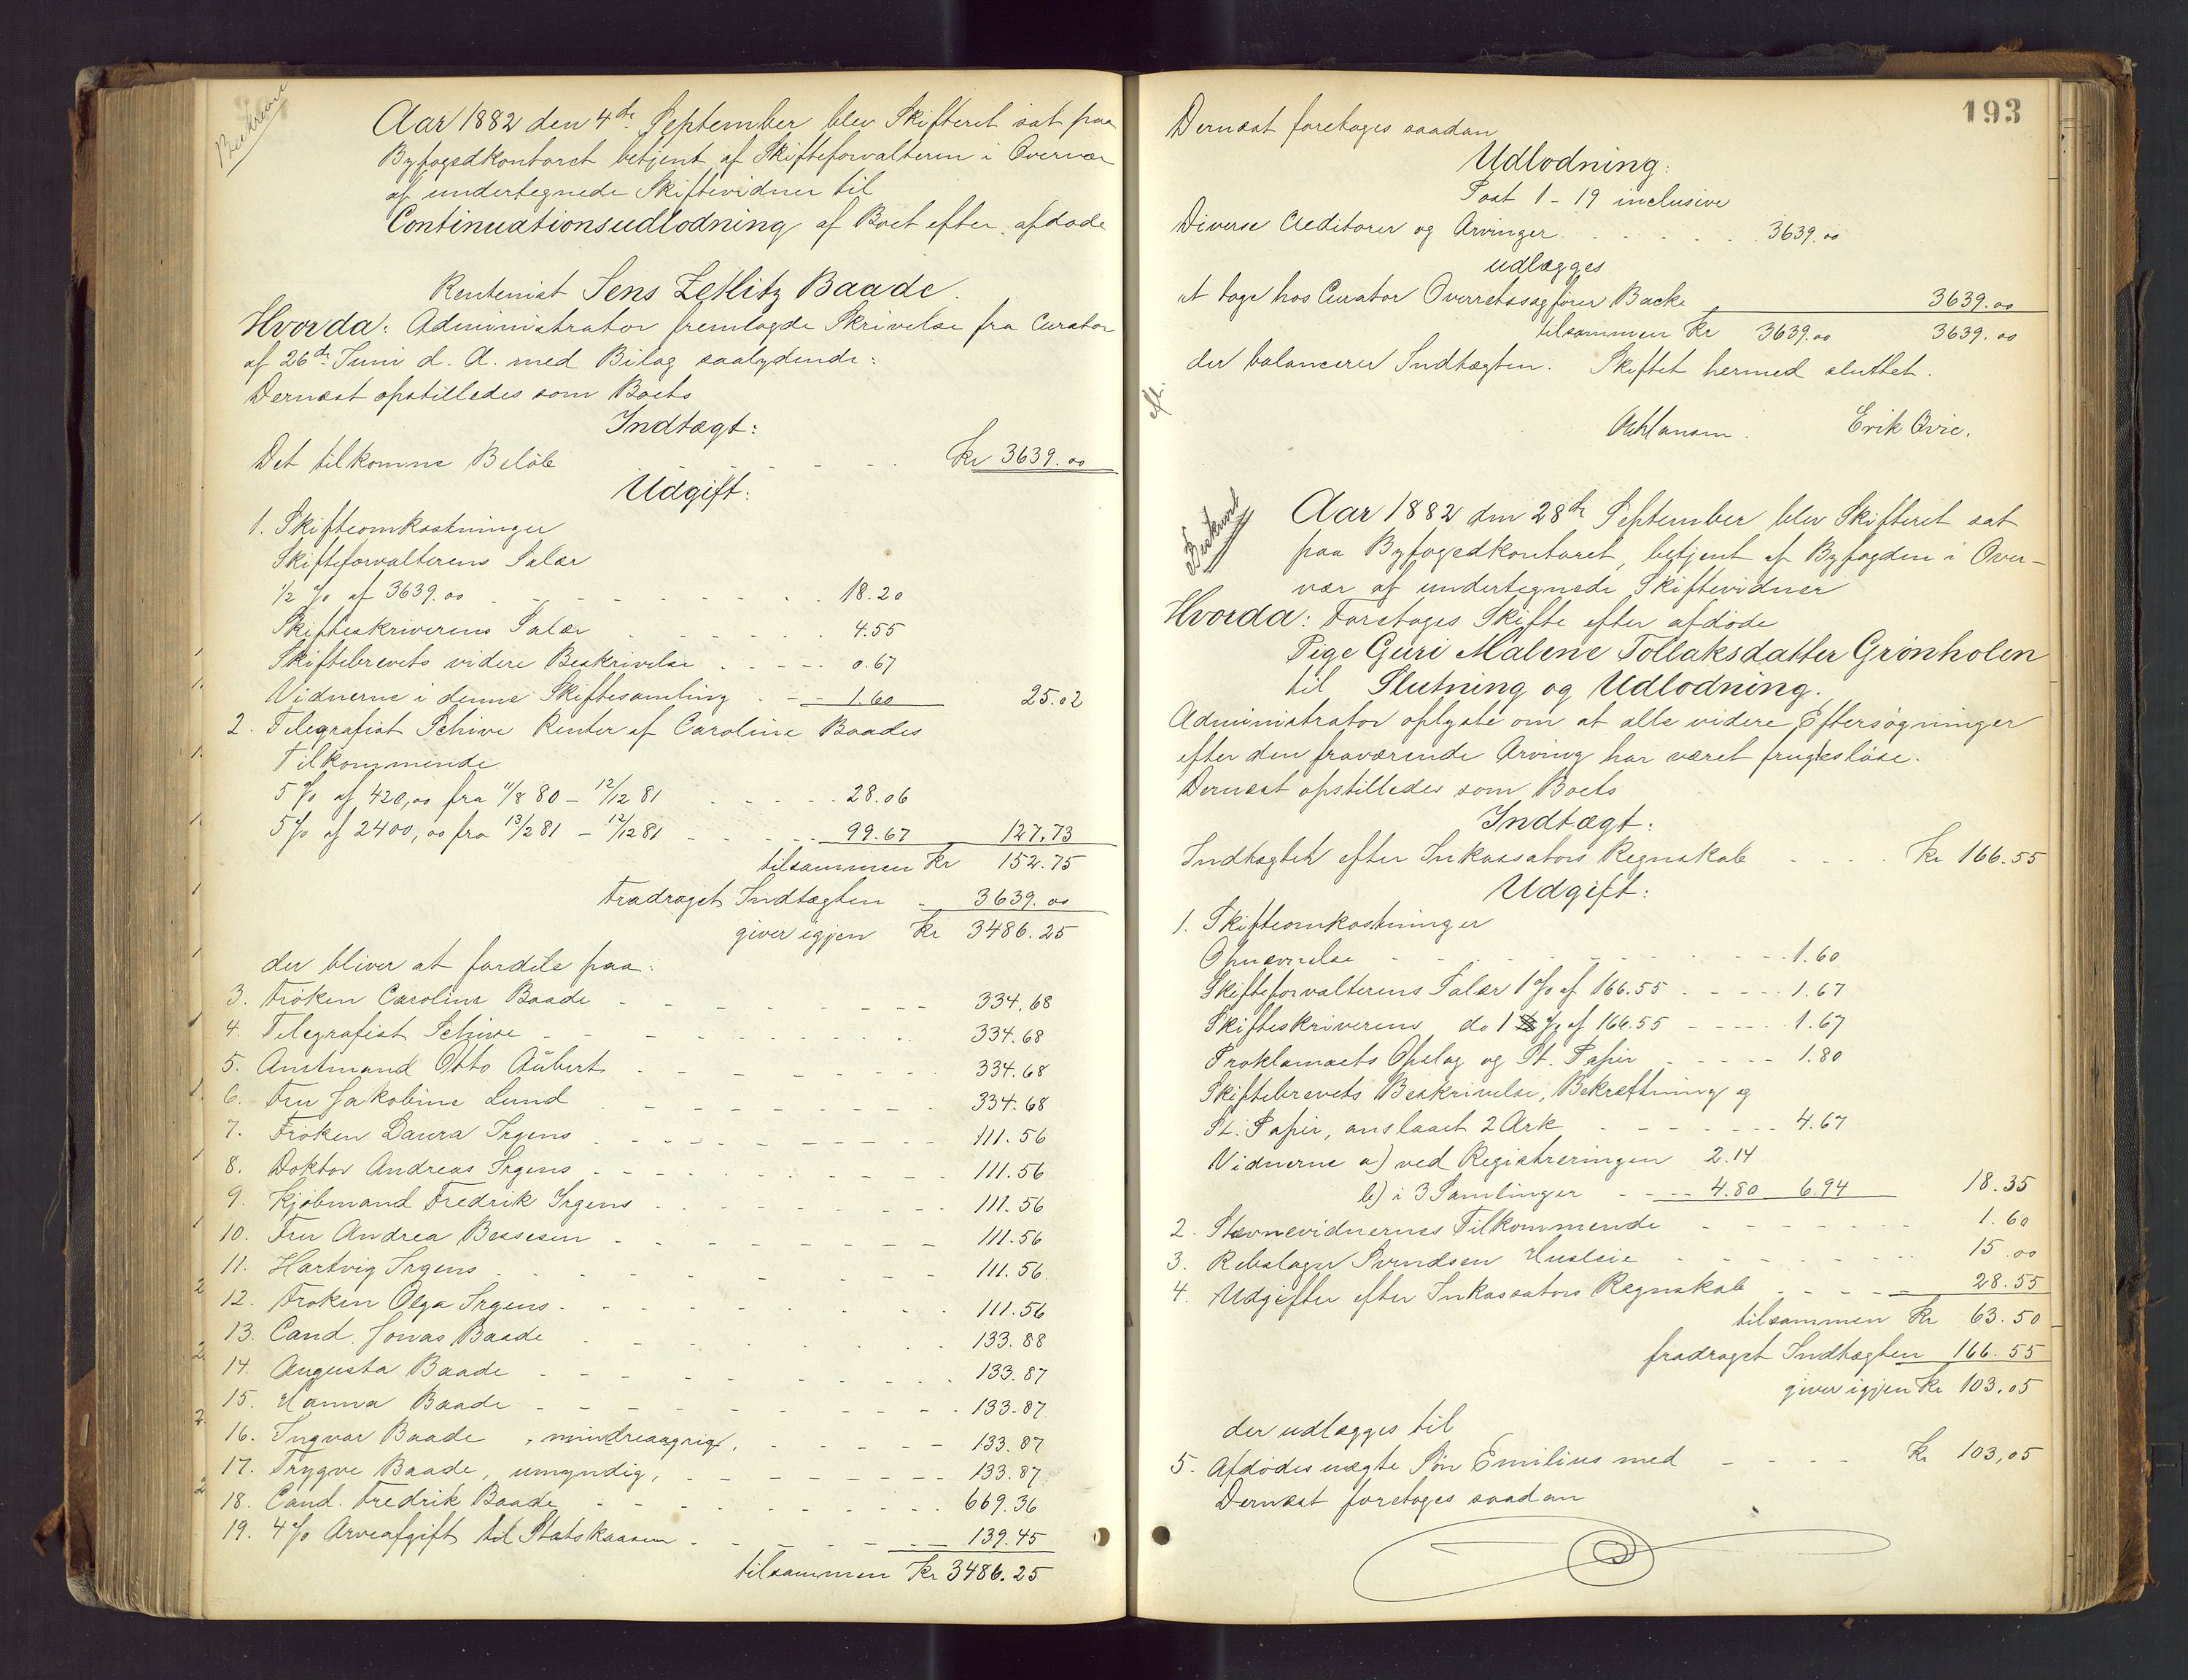 Beskreven
Aar 1882 den 4de September blev Skifteret sat paa
Byfogedkontoret betjent af Skifteforvalteren i Overvær
af undertegnede Skiftevidner til
Continuationsudlodning af Boet efter afdøde
Rentenist Jens Zetlitz Baade.
Hvorda: Administrator fremlagde Skrivelse fra Curator
af 26de Juni d. A. med Bilag saalydende:
Dernæst opstilledes som Boets
Indtægt:
Det tilkomne Beløb Kr 3639.00
Udgift:
1. Skifteomkostninger
Skifteforvalterens Salær
1/2 % af 3639.00 18.20
Skifteskriverens Salær 4.55
Skiftebrevets videre Beskrivelse 0.67
Vidnerne i denne Skiftesamling 1.60 25.02
2. Telegrafist Schive Renter af Caroline Baades
Tilkommende
5 % af 420,00 fra 11/8 80 - 12/12 81 28.06
5 % af 2400,00 fra 13/2 81 - 12/12 81 99.67 127.73
tilsammen Kr 152.75
fradraget Indtægten 3639.00
giver igjen Kr 3486.25
der bliver at fordele paa:
3. Frøken Caroline Baade 334.68
4. Telegrafist Schive 334.68
5. Amtmand Otto Aubert 334.68
6. Fru Jakobine Lund 334.68
7. Frøken Laura Irgens 111.56
8. Doktor Andreas Irgens 111.56
9. Kjøbmand Fredrik Irgens 111.56
10. Fru Andrea Bessesen 111.56
11. Hartvig Irgens 111.56
12. Frøken Olga Irgens 111.56
13. Cand. Jonas Baade 133.88
14. Augusta Baade 133.87
15. Hanna Baade 133.87
16. Ingvar Baade, mindreaarig, 133.87
17. Trygve Baade, umyndig, 133.87
18. Cand. Fredrik Baade 669.36
19. 4 % Arveafgift til Statskassen 139.45
tilsammen Kr 3486.25
193
Dernæst foretoges saadan
Udlodning:
Post 1 - 19 inclusive
Diverse Creditorer og Arvinger 3639.00
udlægges
at tage hos Curator Overretssagfører Backe 3639.00
tilsammen Kr 3639.00 3639.00
der balancerer Indtægten. Skiftet hermed sluttet.
Erik Qvie.
Beskrevet
Aar 1882 den 28de September blev Skifteret sat
paa Byfogedkontoret, betjent af Byfogden i Over-
vær af undertegnede Skiftevidner
Hvorda: Foretoges Skifte efter afdøde
Pige Guri Malene Tollaksdatter Grønholen
til Slutning og Udlodning.
Administrator oplyste om at alle videre Eftersøgninger
efter den fraværende Arving har været frugtesløse.
Dernæst opstilledes som Boets
Indtægt:
Indtægter efter Inkassators Regnskab Kr 166.55
Udgift:
1. Skifteomkostninger
Opnævnelse 1.60
Skifteforvalterens Salær 1 % af 166.55 1.67
Skifteskriverens do 1 % af 166.55 1.67
Proklamaets Opslag og St. Papir 1.80
Skiftebrevets Beskrivelse, Bekræftning og
St. Papir, anslaaet 2 Ark 4.67
Vidnerne a) ved Registreringen 2.14
b) i 3 Samlinger 4.80 6.94 18.35
2. Stævnevidnernes Tilkommende 1.60
3. Rebslager Svendsen Husleie 15.00
4. Udgifter efter Inkassators Regnskab 28.55
tilsammen Kr 63.50
fradraget Indtægten 166.55
giver igjen Kr 103.05
der udlægges til
5. Afdødes uægte Søn Emilius med Kr 103,05
Dernæst foretoges saadan